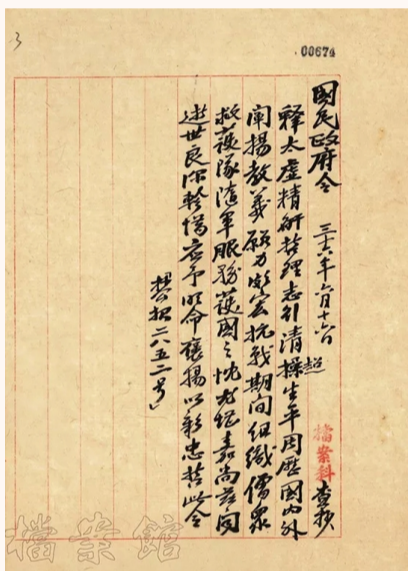 00674
3
國民政府令 三十六年六月十六日
檔案科查抄
超
釋太虛精研哲理志行清操生平周歷國內外
闡揚教義願力頗宏抗戰期間組織僧眾
救護隊隨軍服務護國之忱尤堪嘉尚茲聞
逝世良深軫惜應予明令褒揚以彰忠哲此令
公報二八五二號」
檔案館